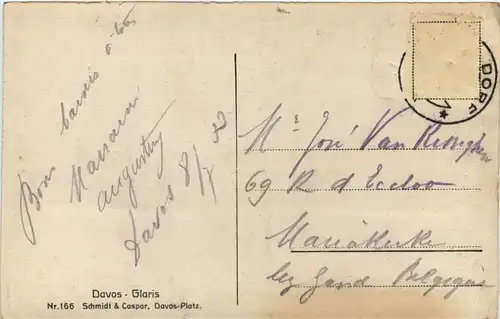 Bon baisers à tous
Maman
augustin
Davos 8/7 32
Davos - Glaris
Nr. 166 Schmidt & Caspar, Davos-Platz.
DORF
Mr José Van
69 R d Eecloo
Mariakerke
bez Gand Belgique